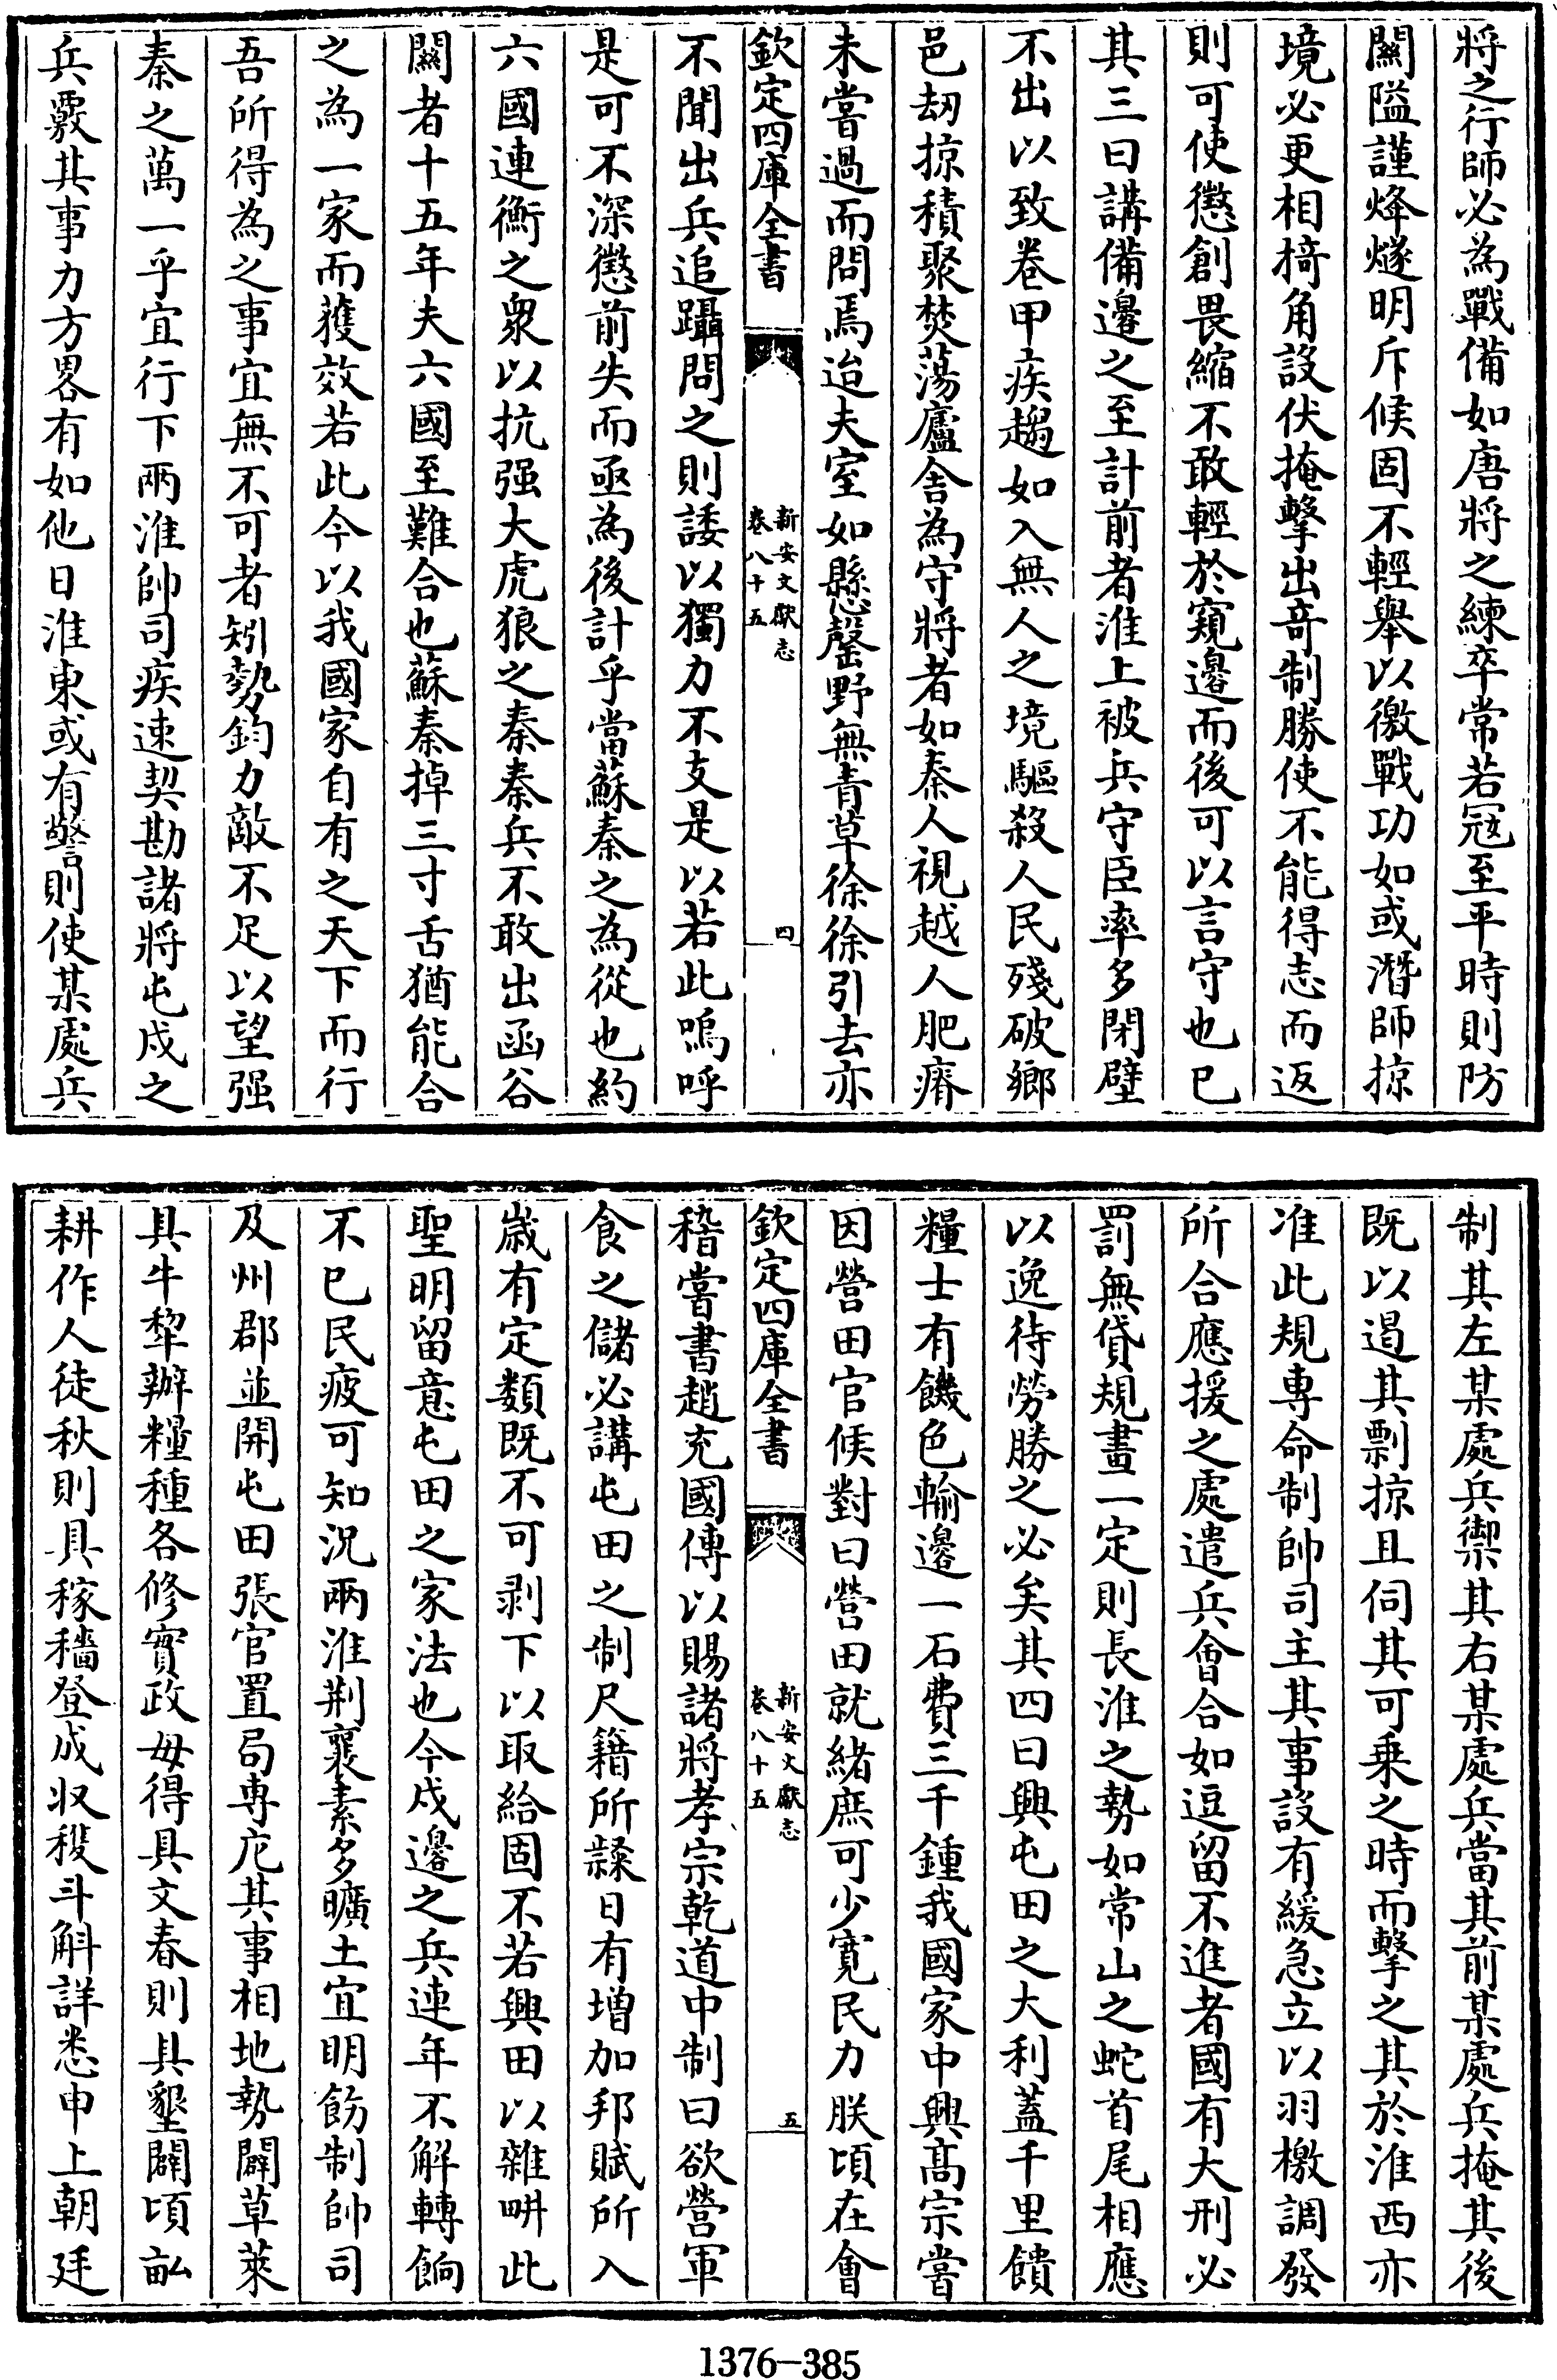 將之行師必為戰備如唐將之練卒常若冦至平時則防
闗隘謹烽燧明斥候固不輕舉以徼戰功如或潛師掠
境必更相掎角設伏掩擊出竒制勝使不能得志而返
則可使懲創畏縮不敢輕於窺邊而後可以言守也已
其三曰講備邊之至計前者淮上被兵守臣率多閉壁
不出以致卷甲疾趨如入無人之境驅殺人民殘破鄉
邑刼掠積聚焚蕩廬舍為守將者如秦人視越人肥瘠
未嘗過而問焉迨夫室如懸罄野無青草徐徐引去亦
欽定四庫全書
新安文獻志
卷八十五
四
不聞出兵追躡問之則諉以獨力不支是以若此嗚呼
是可不深懲前失而亟為後計乎當蘇秦之為從也約
六國連衡之衆以抗强大虎狼之秦秦兵不敢出函谷
闗者十五年夫六國至難合也蘇秦掉三寸舌猶能合
之為一家而獲效若此今以我國家自有之天下而行
吾所得為之事宜無不可者矧勢鈞力敵不足以望强
秦之萬一乎宜行下兩淮帥司疾速契勘諸將屯戍之
兵覈其事力方畧有如他日淮東或有警則使某處兵
制其左某處兵禦其右某處兵當其前某處兵掩其後
既以遏其剽掠且伺其可乗之時而擊之其於淮西亦
准此規専命制帥司主其事設有緩急立以羽檄調發
所合應援之處遣兵會合如逗留不進者國有大刑必
罰無貸規畫一定則長淮之勢如常山之蛇首尾相應
以逸待勞勝之必矣其四曰興屯田之大利蓋千里饋
糧士有饑色輸邊一石費三千鍾我國家中興髙宗嘗
因營田官候對曰營田就緒庶可少寛民力朕頃在會
欽定四庫全書
新安文獻志
卷八十五
五
稽嘗書趙充國傳以賜諸將孝宗乾道中制曰欲營軍
食之儲必講屯田之制尺籍所隷日有增加邦賦所入
歳有定類既不可剥下以取給固不若興田以雜畊此
聖明留意屯田之家法也今戍邊之兵連年不解轉餉
不已民疲可知況兩淮荆襄素多曠土宜明飭制帥司
及州郡並開屯田張官置局専庀其事相地勢闢草萊
具牛犂辦糧種各修實政毋得具文春則具墾闢頃畝
耕作人徒秋則具稼穡登成収穫斗斛詳悉申上朝廷
1376-385